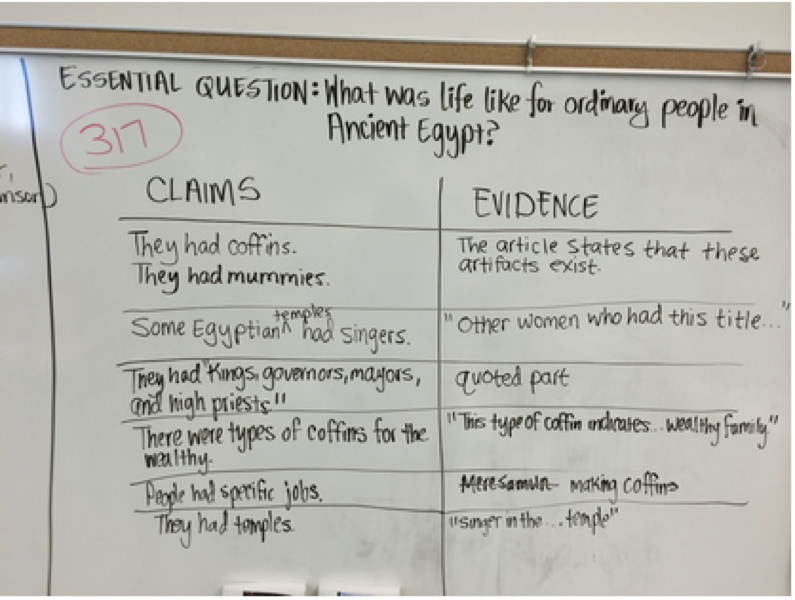 ESSENTIAL QUESTION: What was life like for ordinary people in
Ancient Egypt?
317
nsor)
CLAIMS
EVIDENCE
They had coffins.
They had mummies.
The article states that these
artifacts exist.
Some Egyptian temples had singers.
"Other women who had this title..."
They had "Kings, governors, mayors,
and high priests"
quoted part
There were types of coffins for the
wealthy.
"This type of coffin indicates...wealthy family"
People had specific jobs.
Meresamun making coffins
They had temples.
"singer in the...temple"